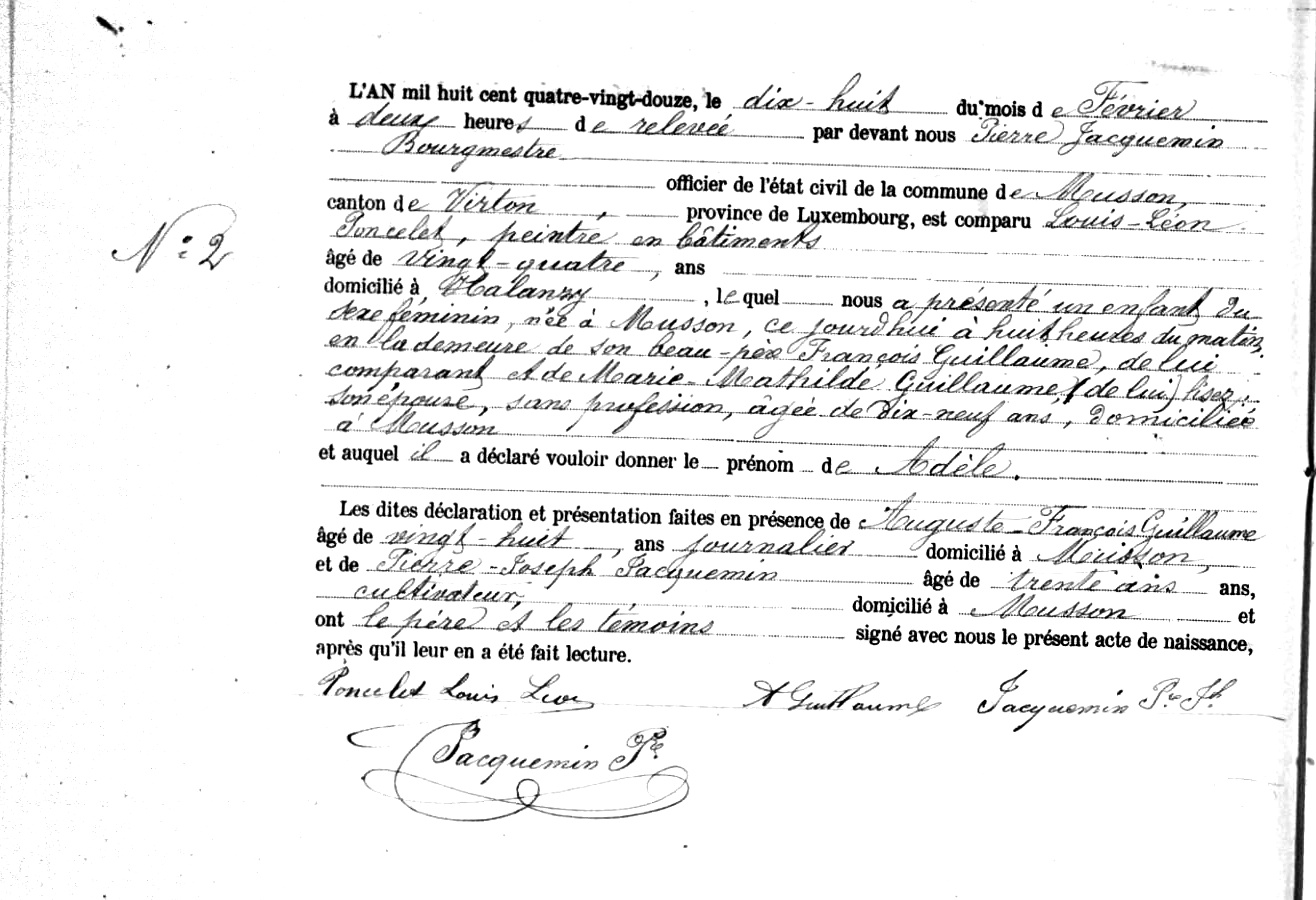 L'AN mil huit cent quatre-vingt-douze, le dix-huit du mois de Février
à deux heures de relevée par devant nous Pierre Jacquemin
Bourgmestre
officier de l'état civil de la commune de Musson,
canton de Virton, province de Luxembourg, est comparu Louis-Léon
N° 2
Poncelet, peintre en bâtiments
âgé de vingt-quatre, ans
domicilié à Halanzy, lequel nous a présenté un enfant du
sexe féminin, née à Musson, ce jourd'hui à huit heures du matin,
en la demeure de son beau-père François Guillaume, de lui
comparant et de Marie-Mathilde Guillaume, (de lui) lisez:
son épouse, sans profession, âgée de dix-neuf ans, domiciliée
à Musson
et auquel il a déclaré vouloir donner le prénom de Adèle.
Les dites déclaration et présentation faites en présence de Auguste-François Guillaume
âgé de vingt-huit, ans journalier domicilié à Musson,
et de Pierre-Joseph Jacquemin âgé de trente ans ans,
cultivateur, domicilié à Musson et
ont le père et les témoins signé avec nous le présent acte de naissance,
après qu'il leur en a été fait lecture.
Poncelet Louis Leon A Guillaume Jacquemin Pre Jh
Jacquemin Pre